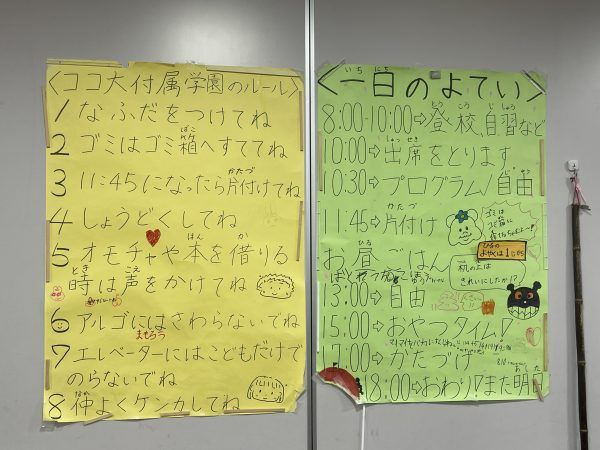 <ココ大付属学園のルール>
1 なふだをつけてね
2 ゴミはゴミ箱へすててね
3 11:45になったら片付けてね
4 しょうどくしてね
5 オモチャや本を借りる
時は声をかけてね
6 アルゴにはさわらないでね
7 エレベーターにはこどもだけで
のらないでね
8 仲よくケンカしてね
<一日のよてい>
8:00-10:00⇨登校、自習など
10:00⇨出席をとります
10:30⇨プログラム/自由
11:45⇨片付け
お昼ごはん
13:00⇨自由
15:00⇨おやつタイム♪
17:00⇨かたづけ
18:00⇨おわり!また明日
ゴミは
ゴミ箱に
机の上は
きれいにしたか!?